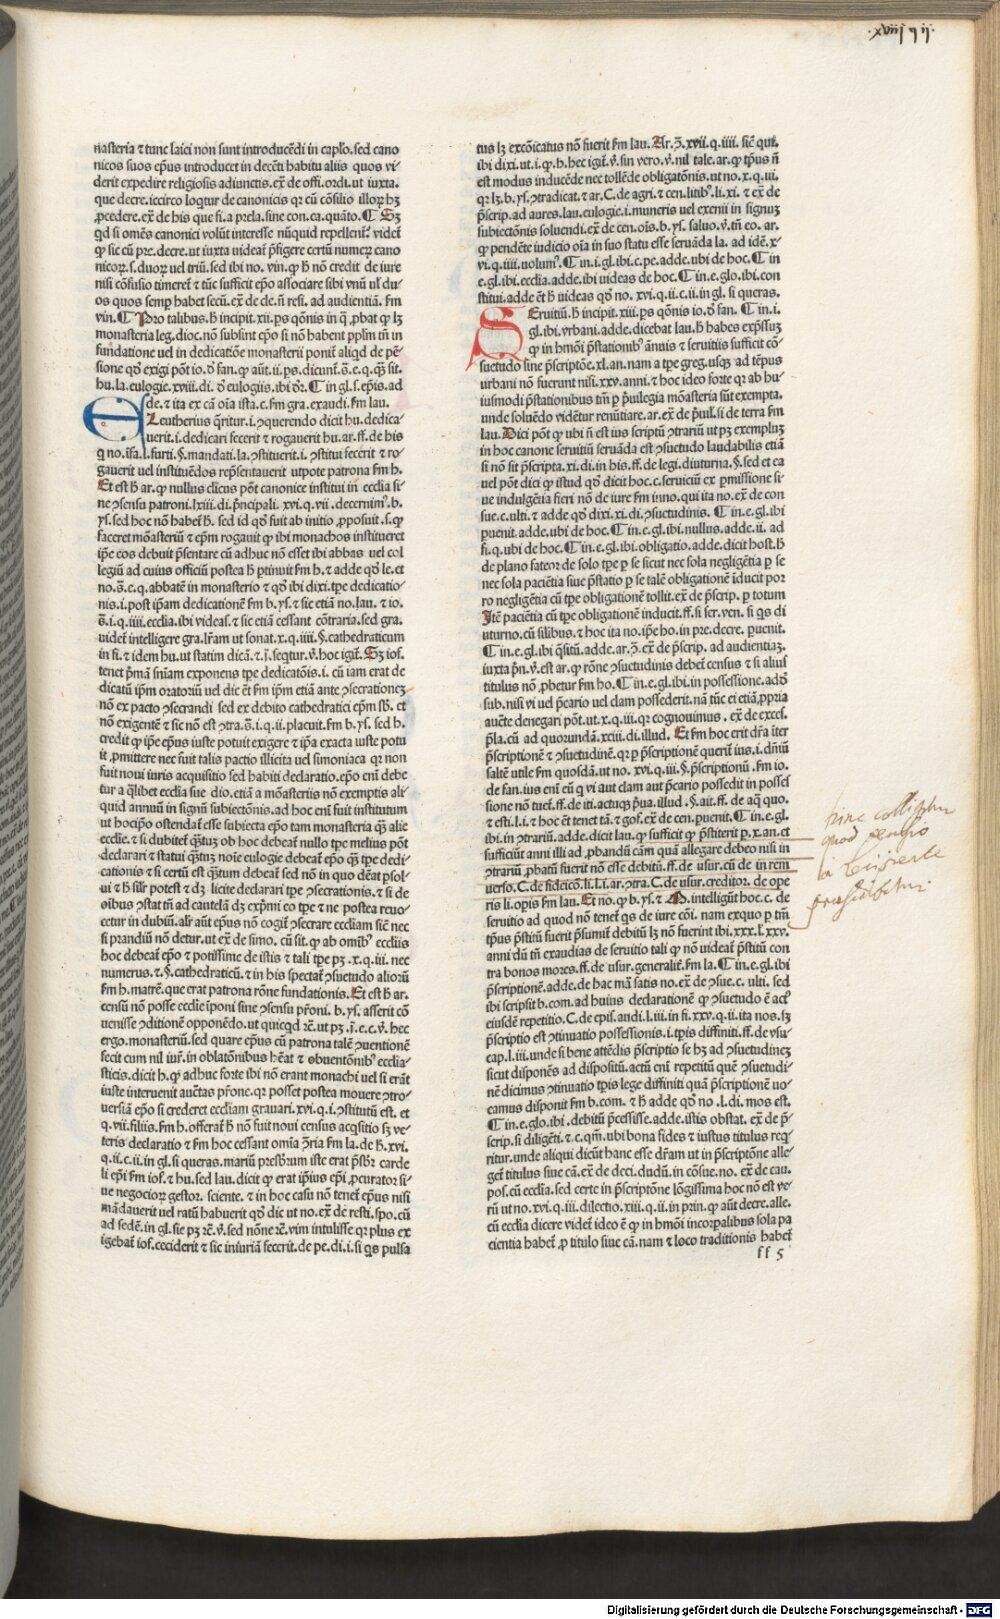 .xviij q ij.
nasteria ⁊ tunc laici non sunt introducēdi in caplo. sed cano
nicos suos ep̄us introducet in decēti habitu aliis quos vi-
derit expedire religiosis adiunctis. ex̄ de offi. ordi. ut iuxta.
que decre. iccirco loqr̄ de canonicis qr cū cōsilio illorꝝ hꝫ
ꝓcedere. ex̄ de his que fi. a prela. sine con. ca. quāto. ¶ Sꝫ
qd si omēs canonici volūt interesse nūquid repellent᷑. videt᷑
ꝙ sic cū pre. decre. ut iuxta videat᷑ p̄figere certū numeꝝ cano
nicoꝝ. s. duoꝝ uel triū. sed ibi no. vin. ꝙ hͦ nō credit de iure
nisi cōfusio timeret᷑ ⁊ tūc sufficit ep̄o associare sibi vnū ul᷑ du-
os quos semꝑ habet secū. ex̄ de cle. n̄ resi. ad audientiā. fm
vin. ¶ Pro talibus. h̄ incipit .xii. ps qōnis in q̄ ꝓbat ꝙ lꝫ
monasteria leg. dioc. nō subsint ep̄o si nō habent pplm̄ tn̄ in
fundatione uel in dedicatiōe monasterii ponit᷑ aliqd de pē-
sione qd̄ exigi pōt io. d̄ fan. ꝙ aūt. ii. ps. dicunt᷑. s̄. e. q. qꝫ sit.
hu. la. eulogie. xviii. di. d̄ eulogiis. ibi dr̄. ¶ in gl. s. ep̄is. ad
de. ⁊ ita ex cā oīa ista. c. fm gra. exaudi. fm lau.
Eleutherius q̄ritur. i. ↄquerendo dicit hu. dedica-
uerit. i. dedicari fecerit ⁊ rogauerit hu. ar. ff. de his
q no. īfa. l. furti. §. mandati. la. ↄstituerit. i. ↄstitui fecerit ⁊ ro-
gauerit uel instituēdos rep̄sentauerit utpote patrona fm h.
Et est h̄ ar. ꝙ nullus clicus pōt canonice institui in ecclia si-
ne ↄsensu patroni. lxiii. di. p̄ncipali. xvi. q. vii. decernim᷒. b.
ys. sed hoc nō habet᷑ h̄. sed id qd̄ fuit ab initio ꝓposuit. s. ꝙ
faceret mōasteriū ⁊ ep̄m rogauit ꝙ ibi monachos institueret
ip̄e eos debuit p̄sentare cū adhuc nō esset ibi abbas uel col
legiū ad cuius officiū postea h̄ ptinuit fm h. ⁊ adde qd̄ le. et
no. s̄. e. q. abbatē in monasterio ⁊ qd̄ ibi dixi. tp̄e dedicatio-
nis. i. post ip̄am dedicationē fm b. ys. ⁊ sic etiā no. lau. ⁊ io.
s̄. i. q. iiii. ecclia. ibi videas. ⁊ sic etiā cessant cōtraria. sed gra.
videt᷑ intelligere gra. lr̄am ut sonat. x. q. iiii. §. cathedraticum
in fi. ⁊ idem hu. ut statim dicā. ⁊ j̄. seqtur. v̄. hoc igit᷑. Sꝫ ios.
tenet p̄mā snīam exponens tp̄e dedicatōis. i. cū iam erat de
dicatū ip̄m oratoriū uel dic ē t᷑ fm ip̄m etiā ante ↄsecrationeꝫ
nō ex pacto ↄsecrandi sed ex debito cathedratici ep̄m sb̄. et
nō exigentē ⁊ sic nō est ↄtra. s̄. i. q. ii. placuit. fm b. ys. sed h.
credit ꝙ ip̄e ep̄us iuste potuit exigere ⁊ ip̄a exacta iuste potu
it ꝓmittere nec fuit talis pactio illicita uel simoniaca qr non
fuit noui iuris acquisitio sed habiti declaratio. ep̄o cnī debe
tur a q̄libet ecclia sue dio. etiā a mōasteriis nō exemptis ali-
quid annuū in signū subiectōnis. ad hoc cnī fuit institutum
ut hocip̄o ostendat᷑ esse subiecta ep̄o tam monasteria q̄ꝫ alie
ecclie. ⁊ si dubitet᷑ q̄tuꝫ ob hoc debeat nullo tp̄e melius pōt
declarari ⁊ statui q̄tuꝫ noīe eulogie debeat ep̄o q̄ꝫ tp̄e dedi-
cationis ⁊ si certū est q̄ntum debeat sed nō in quo deat psol-
ui ⁊ h̄ silr̄ potest ⁊ dꝫ licite declarari tp̄e ↄsecrationis. ⁊ si de
oibus ↄstat tn̄ ad cautelā dꝫ exp̄mi eo tp̄e ⁊ ne postea reuo-
cetur in dubiū. alr̄ aūt ep̄us nō cogit᷑ ↄsecrare eccliam sic nec
si prandiū nō detur. ut ex̄ de simo. cū sit. ꝙ ab omib᷒ eccliis
hoc debeat ep̄o ⁊ potissime de istis ⁊ tali tp̄e pꝫ .x. q. iii. nec
numerus. ⁊. §. cathedraticū. ⁊ in his spectat᷑ ↄsuetudo alioꝝ
fm h. matrē. que erat patrona rōne fundationis. Et est h̄ ar.
censū nō posse ecclie īponi sine ↄsensu pr̄oni. b. ys. asserit cō
uenisse ↄditionē opponēdo. ut quicqd r̄c. ut pꝫ. j̄. e. c. v̄. hec
ergo. monasteriū. sed quare ep̄us cū patrona talē ↄuentionē
fecit cum nil iur̄. in oblatōnibus hēat ⁊ obuentōnib᷒ ecclia-
sticis. dicit h. ꝙ adhuc forte ibi nō erant monachi uel si erāt
iuste interuenit auc̄tas pr̄one. qr posset postea mouere ↄtro-
uersiā ep̄o si crederet eccliam grauari. xvi. q. i. ↄstitutū est. et
q. vii. filiis. fm h. offerat᷑ h̄ nō fuit noui census acqsitio sꝫ ve-
teris declaratio ⁊ fm hoc cessant omīa ↄ̄ria fm la. de h̄. xvi.
q. ii. c. ii. in gl. si queras. mariū presb̄rum iste erat p̄sb̄r carde
li ep̄i fm ios. ⁊ hu. sed lau. dicit ꝙ erat ip̄ius ep̄i ꝓcurator si-
ue negocioꝝ gestor. sciente. ⁊ in hoc casu nō tenet᷑ ep̄us nisi
mādauerit uel ratū habuerit qd̄ dic ut no. ex̄ de resti. spo. cū
ad sedē. in gl. sic pꝫ r̄c. v̄. sed nōne r̄c. vim intulisse qr plus ex
igebat᷑ ios. ceciderit ⁊ sic iniuriā fecerit. de pe. di. i. si qs pulsa
tus lꝫ excōicatus nō fuerit fm lau. Ar. ↄ̄. xvii. q. iiii. sic̄ qui.
ibi dixi. ut. i. ꝙ. h. hec igit᷑. v̄. sin vero. v̄. nil tale. ar. ꝙ tp̄us n̄
est modus inducēde nec tollēde obligatōnis. ut no. x. q. vi.
qr lꝫ. b. ys. ↄtradicat. ⁊ ar. C. de agri. ⁊ cen. litib᷒. li. xi. ⁊ ex̄ de
p̄scrip. ad aures. lau. eulogie. i. muneris uel exenii in signuꝫ
subiectōnis soluendi. ex̄ de cen. oīs. b. ys. saluo. v̄. tn̄ eo. ar.
ꝙ pendēte iudicio oīa in suo statu esse seruāda la. ad idē. x-
vi. q. iiii. uolum᷒. ¶ in. i. gl. ibi. c. pe. adde. ubi de hoc. ¶ in
e. gl. ibi. ecclia. adde. ibi uideas de hoc. ¶ in. e. glo. ibi. con
stitui. adde ēt h̄ uideas qd̄ no. xvi. q. ii. c. ii. in gl. si queras.
Seruitiū. h̄ incipit. xiii. ps qōnis io. d̄ fan. ¶ in. i.
gl. ibi. vrbani. adde. dicebat lau. h̄ habes exp̄ssuꝫ
ꝙ in hmōi p̄stationib᷒ ānuis ⁊ seruitiis sufficit cō-
suetudo sine p̄scriptōe. xl. an. nam a tp̄e greg. usqꝫ ad tēpus
urbani nō fuerunt nisi. xxv. anni. ⁊ hoc ideo forte qr ab hu-
iusmodi p̄stationibus tm̄ p p̄uilegia mōasteria sūt exempta.
unde soluēdo vidētur renūtiare. ar. ex̄ de p̄uil. si de terra fm
lau. Dici pōt ꝙ ubi n̄ est ius scriptū ↄtrariū ut pꝫ exempluꝫ
in hoc canone seruitiū seruāda est ↄsuetudo laudabilis etiā
si nō sit p̄scripta. xi. di. in his. ff. de legi. diuturna. §. sed et ea
uel pōt dici ꝙ istud qd̄ dicit hoc. c. seruiciū ex pmissione si-
ue indulgētia fieri nō de iure fm inno. qui ita no. ex̄ de con
sue. c. ulti. ⁊ adde qd̄ dixi. xi. di. ↄsuetudinis. ¶ in. e. gl. ibi
puenit. adde. ubi de hoc. ¶ in. e. gl. ibi. nullus. adde. ii. ad
fi. q. ubi de hoc. ¶ in. e. gl. ibi. obligatio. adde. dicit host. h̄
de plano fateor de solo tp̄e p se sicut nec sola negligētia p se
nec sola paciētia siue p̄statio p se talē obligationē īducit por
ro negligētia cū tp̄e obligationē tollit. ex̄ de p̄scrip. p totum
Itē paciētia cū tp̄e obligationē inducit. ff. si ser. ven. si qs di
uturno. cū silibus. ⁊ hoc ita no. ip̄e ho. in pre. decre. puenit.
¶ in. e. gl. ibi q̄situ. adde. ar. ↄ̄. ex̄ de p̄scrip. ad audientiaꝫ.
iuxta p̄n. v̄. est ar. ꝙ rōne ↄsuetudinis debet᷑ census ⁊ si alius
titulus nō ꝓbetur fm ho. ¶ in. e. gl. ibi. in possessione. adde
sub. nisi vi uel p̄cario uel clam possederit. nā tūc ei etiā ꝓpria
auc̄te denegari pōt. ut. x. q. iii. qr cognouimus. ex̄ de exces.
p̄la. cū ad quorundā. xciii. di. illud. Et fm hoc erit dr̄a īter
p̄scriptionē ⁊ ↄsuetudinē. qr p p̄scriptionē querit᷑ ius. i. dn̄iū
saltē utile fm quosdā. ut no. xvi. q. iii. §. p̄scriptionū. fm io.
de fan. ius enī eū q vi aut clam aut p̄cario possedit in posses
sione nō tuet᷑. ff. de iti. actuqꝫ p̄ua. illud. §. ait. ff. de aq̄ quo.
⁊ esti. l. i. ⁊ hoc ēt tenet tā. ⁊ gof. ex̄ de cen. puenit. ¶ in. e. gl.
ibi. in ↄtrariū. adde. dicit lau. ꝙ sufficit ꝙ p̄stiterit p. x. an. et
sufficiūt anni illi ad ꝓbandū cām quā allegare debeo nisi in
ↄtrariū ꝓbatū fuerit nō esse debitū. ff. de usur. cū de in rem
verso. C. de fideicō. li. l. i. ar. ↄtra. C. de usur. creditor. de ope
ris li. opis fm lau. Et no. ꝙ b. ys. ⁊ M. intelligūt hoc. c. de
seruitio ad quod nō tenet᷑ qs de iure cōi. nam exquo p tm̄
tp̄us p̄stitū fuerit p̄sumit᷑ debitū lꝫ nō fuerint ibi. xxx. l᷑. xxv.
anni dū tn̄ exaudias de seruitio tali ꝙ nō videat᷑ p̄stitū con
tra bonos mores. ff. de usur. generalit᷑. fm la. ¶ in. e. gl. ibi
p̄scriptionē. adde. de hac mā satis no. ex̄ de ↄsue. c. ulti. sed
ibi scripsit b. com. ad huius declarationē ꝙ ↄsuetudo ē act᷒
eiusdē repetitio. C. de epis. audi. l. iii. in fi. xxv. q. ii. ita nos. sꝫ
p̄scriptio est ↄtinuatio possessionis. i. tp̄is diffiniti. ff. de usu
cap. l. iii. unde si bene attēdis p̄scriptio se hꝫ ad ↄsuetudineꝫ
sicut disponēs ad dispositū. actū enī repetitū quē ↄsuetudi-
nē dicimus ↄtinuatio tp̄is lege diffiniti quā p̄scriptionē uo-
camus disponit fm b. com. ⁊ h̄ adde qd̄ no. l. di. mos est.
¶ in. e. glo. ibi. debitū p̄cessisse. adde. istis obstat. ex̄ de p̄-
scrip. si diligēti. ⁊. c. qm̄. ubi bona fides ⁊ iustus titulus req
ritur. unde aliqui dicūt hanc esse dr̄am ut in p̄scriptōne alle-
get᷑ titulus siue cā. ex̄ de deci. dudū. in cōsue. no. ex̄ de cau.
pos. cū ecclia. sed certe in p̄scriptōne lōgissima hoc nō est ve-
rū ut no. xvi. q. iii. dilectio. xiii. q. ii. in prin. ꝙ aūt decre. alle.
cū ecclia dicere videt᷑ ideo ē ꝙ in hmōi incorpalibus sola pa
cientia habet᷑ ꝓ titulo siue cā. nam ⁊ loco traditionis habet᷑
ff 5
hinc colligitur
quod pensio
Digitalisierung gefördert durch die Deutsche Forschungsgemeinschaft - DFG